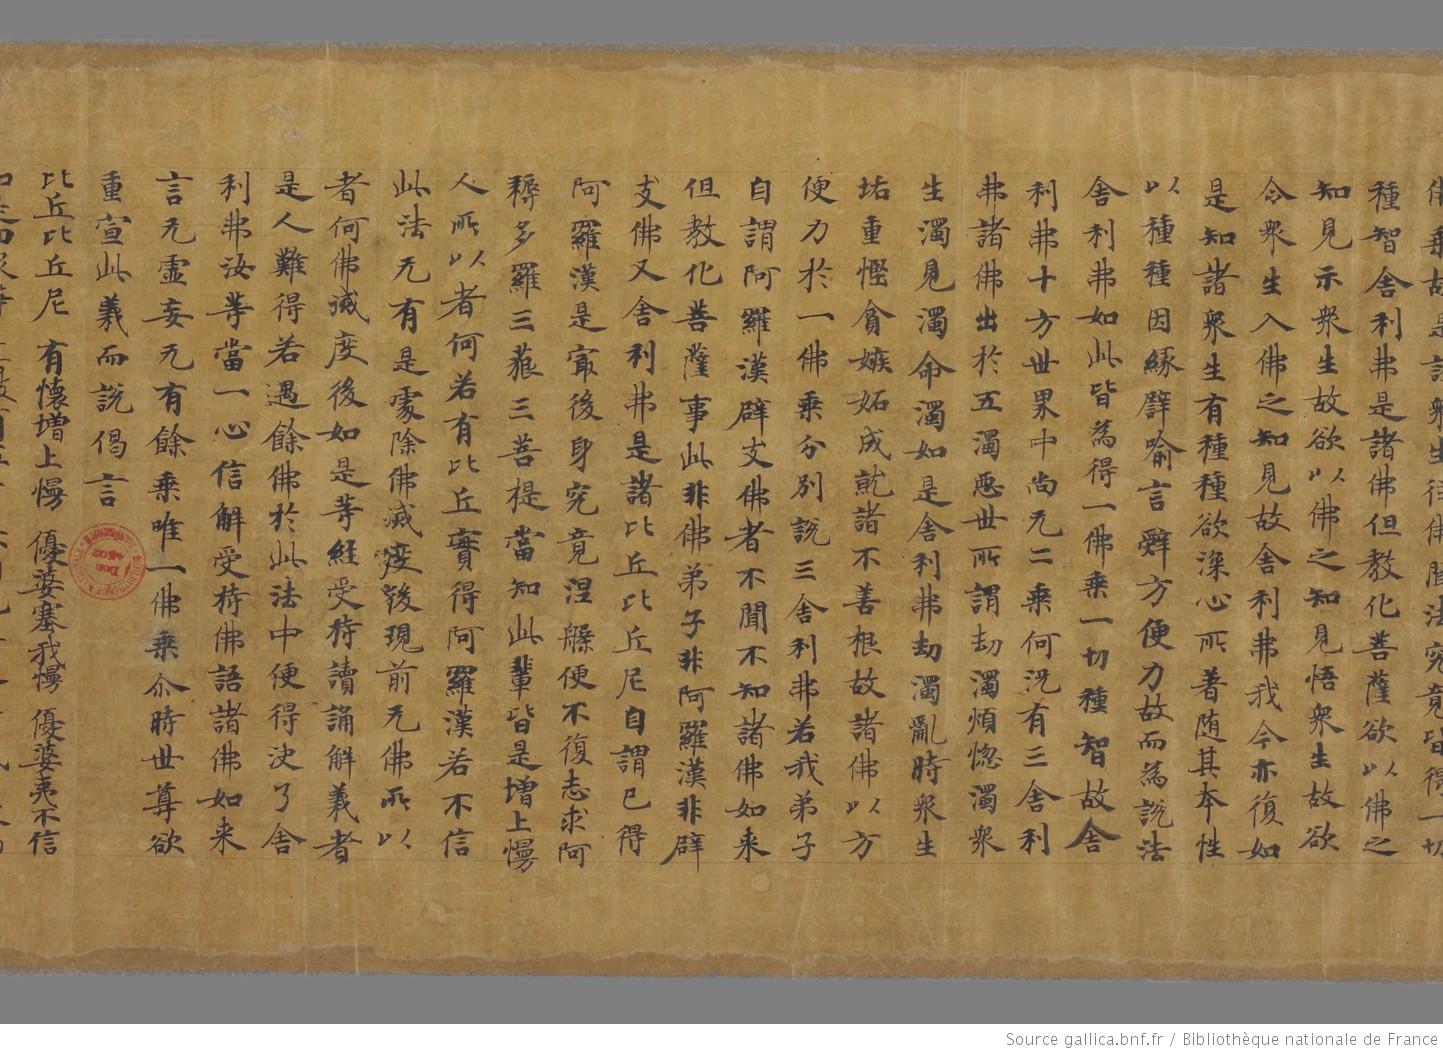 佛乘故是諸衆生從佛聞法究竟皆得一切
種智舍利弗是諸佛但教化菩薩欲以佛之
知見示衆生故欲以佛之知見悟衆生故欲
令衆生入佛之知見故舍利弗我今亦復如
是知諸衆生有種種欲深心所著随其本性
以種種因緣辟喻言辭方便力故而為說法
舍利弗如此皆為得一佛乘一切種智故舍
利弗十方世界中尚无二乘何況有三舍利
弗諸佛出於五濁惡世所謂劫濁煩惚濁衆
生濁見濁命濁如是舍利弗劫濁亂時衆生
垢重慳貪嫉妬成就諸不善根故諸佛以方
便力於一佛乘分別說三舍利弗若我弟子
自謂阿羅漢辟支佛者不聞不知諸佛如来
但教化菩薩事此非佛弟子非阿羅漢非辟
支佛又舍利弗是諸比丘比丘尼自謂已得
阿羅漢是冣後身究竟涅槃便不復志求阿
耨多羅三藐三菩提當知此輩皆是增上慢
人所以者何若有比丘實得阿羅漢若不信
此法无有是處除佛滅度後現前无佛所以
者何佛滅度後如是等經受持讀誦解義者
是人難得若遇餘佛於此法中便得决了舍
利弗汝等當一心信解受持佛語諸佛如来
言无虛妄无有餘乘唯一佛乘尒時世尊欲
重宣此義而說偈言
比丘比丘尼 有懷增上慢 優婆塞我慢 優婆夷不信
Source gallica.bnf.fr / Bibliothèque nationale de France